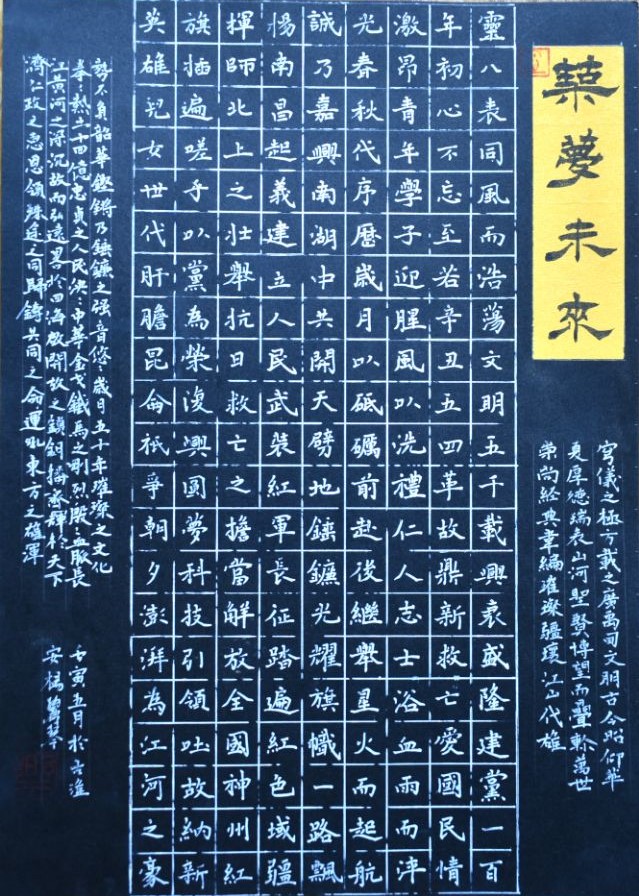 築夢未來
穹儀之極方載之廣萬司文明古今昭仰華
夏厚德瑞表山河聖賢博望而疊軫萬世
崇尚經典韋編璀璨疆環江山代雄
靈八表同風而浩蕩文明五千載興衰盛隆建黨一百
年初心不忘至若辛丑五四革故鼎新救亡愛國民情
激昂青年學子迎腥風以洗禮仁人志士浴血雨而津
光春秋代序歷歲月以砥礪前赴後繼舉星火而起航
誠乃嘉興南湖中共開天劈地鐮光耀旗幟一路飄
楊南昌起義建立人民武裝紅軍長征踏遍紅色域疆
揮師北上之壯舉抗日救亡之擔當解放全國神州紅
旗插遍嗟乎以黨為榮復興圓夢科技引領吐故納新
英雄兒女世代肝膽昆侖祇爭朝夕澎湃為江河之豪
勢不負韶華鏗鏘乃鐮之强音悠悠歲月五十年璀璨之文化
拳拳熱土十四億忠貞之人民泱泱中華金戈鐵馬之剛烈殷殷血脈長
江黃河之深沉故而弘遠畧於四海啟開放之鎖鑰播齊輝於天下
濟仁政之惠恩領殊途之同歸鑄共同之命運叱東方之雄渾
壬寅五月於古
安楊